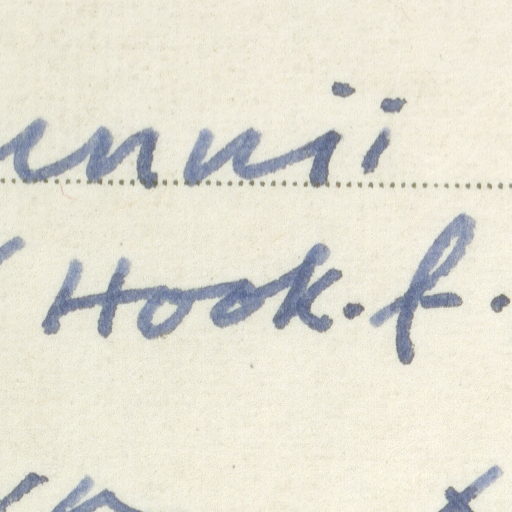 unnii
Hook. f.